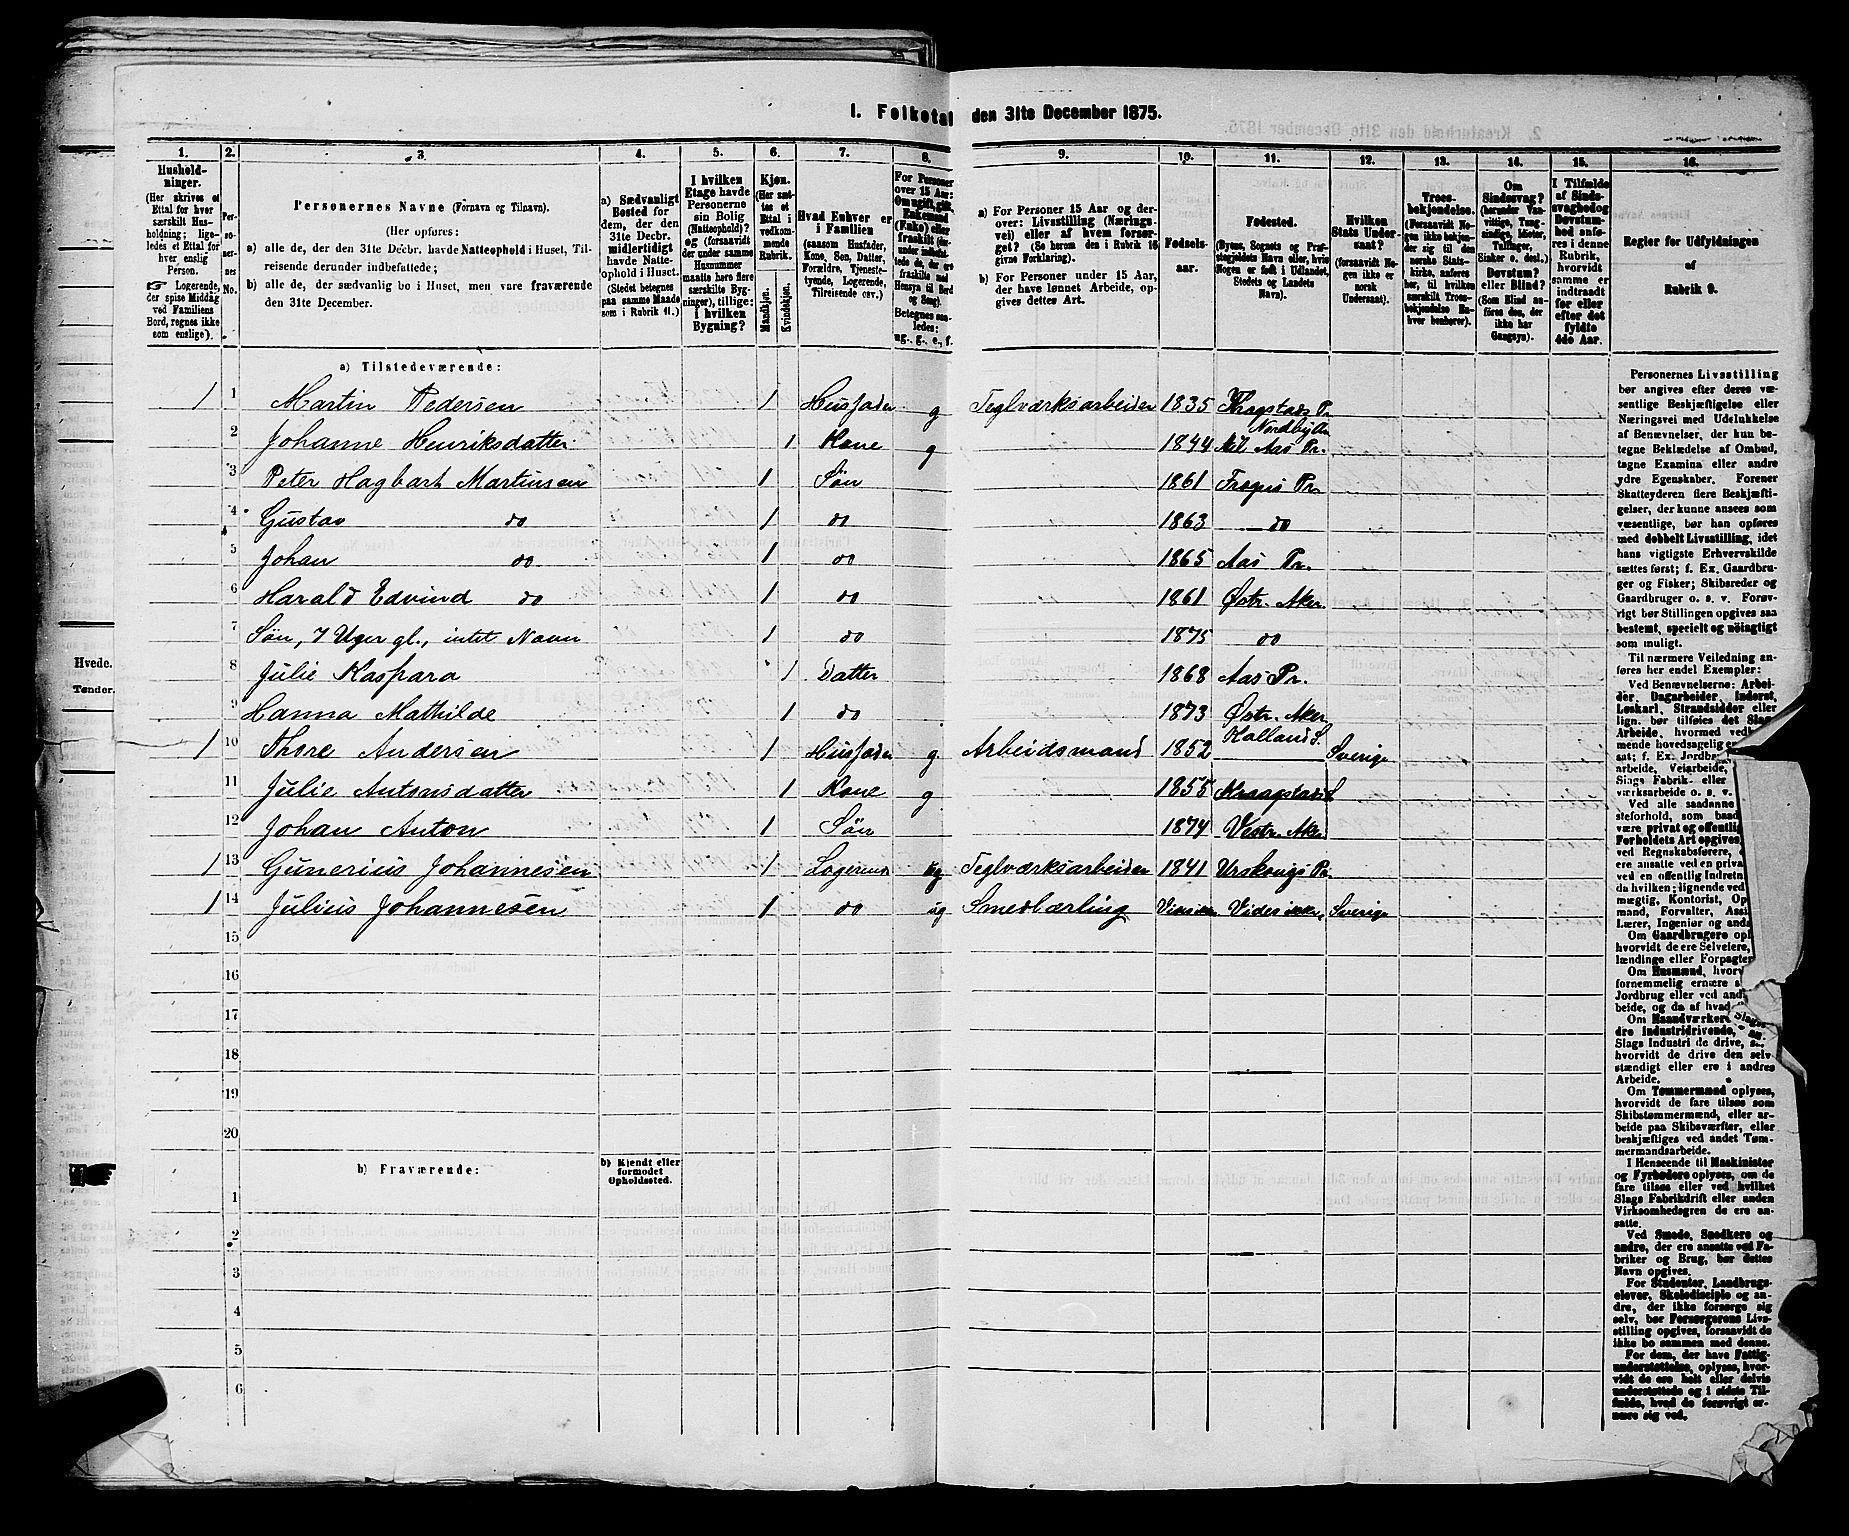 1. Folketal den 31te December 1875.
1. 2. 3. 4. 5. 6. 7. 8. 9. 10. 11. 12. 13. 14. 15. 16.
Hushold-
ninger.
(Her skrives et
Ettal for hver
særskilt Hus-
holdning; lige-
ledes et Ettal for
hver enslig
Person.
☞ Logerende,
der spise Middag
ved Familiens
Bord, regnes ikke
som enslige).
Per-
so-
ner-
nes
No.
Personernes Navne (Fornavn og Tilnavn).
(Her opføres:
a) alle de, der den 31te Decbr. havde Natteophold i Huset, Til-
reisende derunder indbefattede;
b) alle de, der sædvanlig bo i Huset, men vare fraværende
den 31te December.
a) Sædvanligt
Bosted for
dem, der den
31te Decbr.
midlertidigt
havde Natte-
ophold i Huset.
(Stedet betegnes
paa samme Maade
som i Rubrik 11.)
I hvilken
Etage havde
Personerne
sin Bolig
(Natteophold)?
og (forsaavidt
der under samme
Husnummer
maatte høre flere
særskilte Byg-
ninger), tillige:
I hvilken
Bygning?
Kjøn.
(Her sæt-
tes et
Ettal i
vedkom-
mende
Rubrik.
Mandkjøn.
Kvindekjøn.
Hvad Enhver er
i Familien
(saasom Husfader,
Kone, Søn, Datter,
Forældre, Tjeneste-
tyende, Logerende,
Tilreisende osv.)
For Personer
over 15 Aar:
Om ugift, gift,
Enkemand
(Enke) eller
fraskilt
Betegnes saa-
ledes:
ug., g., e., f.
a) For Personer 15 Aar og der-
over: Livsstilling (Nærings-
vei) eller af hvem forsør-
get? (Se herom den i Rubrik 16
givne Forklaring).
b) For Personer under 15 Aar,
der have lønnet Arbeide, op-
gives dettes Art.
Fødsels-
aar.
Fødested.
(Byens, Sognets og Præ-
stegjældets Navn eller, hvis
Nogen er født i Udlandet,
Stedets og Landets
Navn).
Hvilken
Stats Under-
saat?
(forsaavidt No-
gen ikke er
norsk
Undersaat).
Troes-
bekjendelse.
(Forsaavidt No-
gen ikke bekjen-
der sig til den
norske Stats-
kirke, anføres
her, til hvilken
særskilt Troes-
bekjendelse En-
hver henhører).
Om
Sindssvag?
(herunder Van-
vittige, Tung-
sindige, Idioter,
Tullinger,
Sinker o. desl.)
Døvstum?
eller Blind?
(Som Blind an-
føres den, der
ikke har
Gangsyn).
I Tilfælde
af Sinds-
svaghed og
Døvstum-
hed anfø-
res i denne
Rubrik,
hvorvidt
samme er
indtraadt
før eller
efter det
fyldte
4de Aar.
Regler for Udfyldningen
af
Rubrik 9.
a) Tilstedeværende:
1 1 Martin Pedersen 1 Husfader g Teglværksarbeider 1835 Kraagstads Pr.
2 Johanne Henriksdatter 1 Kone g 1844 Nordby An nex Aas Pr.
3 Peter Hagbart Martinsen 1 Søn 1861 Frogns Pr.
4 Gustav do 1 do 1863 do
5 Johan do 1 do 1865 Aas Pr.
6 Harald Edvind do 1 do 1861 Østr. Aker
7 Søn, 7 Uger gl., intet Navn 1 do 1875 do
8 Julie Kaspara 1 Datter 1868 Aas Pr.
9 Hanna Mathilde 1 do 1873 Østr. Aker
1 10 Thore Andersen 1 Husfader g. Arbeidsmand 1852 Halland S. Sverige
11 Julie Antonsdatter 1 Kone g 1855 Kraagstad
12 Johan Anton 1 Søn 1874 Vestr. Aker
1 13 Gunerius Johannesen 1 Logerende ug Teglværksarbeider 1841 Urskougs Pr.
1 14 Julius Johannesen 1 do ug Smedlærling Vides ikke Sverige
15
16
17
18
19
20
b) Fraværende:
b) Kjendt eller
formodet
Opholdssted.
1
2
3
4
5
6
Personernes Livsstilling
bør angives efter deres væ-
sentlige Beskjæftigelse eller
Næringsvei med Udelukkelse
af Benævnelser, der kun be-
tegne Beklædelse af Ombud,
tagne Examina eller andre
ydre Egenskaber. Forener
Skatteyderen flere Beskjæfti-
gelser, der kunne ansees som
væsentlige, bør han opføres
med dobbelt Livsstilling, idet
hans vigtigste Erhvervskilde
sættes først; f. Ex. Gaardbru-
ger og Fisker; Skibsreder og
Gaardbruger o. s. v. Forøv-
rigt bør Stillingen opgives saa
bestemt, specielt og nøiagtigt
som muligt.
Til nærmere Veiledning an-
føres her endel Exempler:
Ved Benævnelserne: Arbei-
der, Dagarbeider, Inderst,
Løskarl, Strandsidder eller
lign. bør tilføies det Slags
Arbeide, hvormed ved
mende hovedsagelig er
sat; f. Ex. Jordbr
arbeide, Veiarbeide,
Slags Fabrik- eller
værksarbeide o. s. v.
Ved alle saadanne
steforhold, som baad
være privat og offentlig
Forholdets Art opgives,
ved Regnskabsførere,
ere ansatte ved en privat
ved en offentlig Indretn
da hvilken; lignende ved
mægtig, Kontorist, Op
mand, Forvalter, Assi
Lærer, Ingeniør og and
Om Gaardbrugere opl
hvorvidt de ere Selveiere,
lændinge eller Forpagter
Om Husmænd, hvorv
fornemmelig ernære s
Jordbrug eller ved and
beide, og da af hvad
Om Haandværkere
dre Industridrivende,
Slags Industri de drive, s
hvorvidt de drive den selv-
stændigt eller ere i andres
Arbeide.
Om Tømmermænd oplyses,
hvorvidt de fare tilsøs som
Skibstømmermænd, eller ar-
beide paa Skibsværfter, eller
beskjæftiges ved andet Tøm-
mermandsarbeide.
I Henseende til Maskinister
og Fyrbødere oplyses, om de
fare tilsøs eller ved hvilket
Slags Fabrikdrift eller anden
Virksomhedsgren de ere an-
satte.
Ved Smede, Snedkere og
andre, der ere ansatte ved Fa-
briker og Brug, bør dettes
Navn opgives.
For Studenter, Landbrugs-
elever, Skoledisciple og an-
dre, der ikke forsørge sig
selv, bør Forsørgerens Livs-
stilling opgives, forsaavidt de
ikke bo sammen med denne.
For dem, der have Fattig-
understøttelse, oplyses, hvor-
vidt de ere helt eller delvis
understøttede og i sidste Til-
fælde, hvad de forøvrigt er-
nære sig ved.
Hvede.
Tønder.